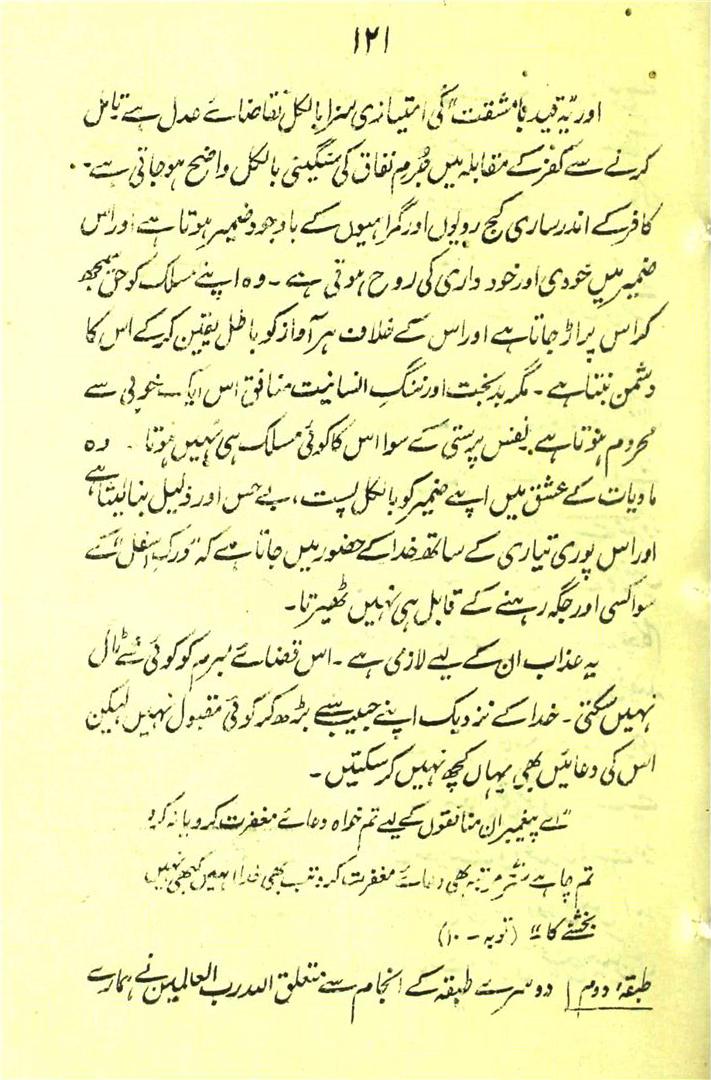 ۱۲۱
اور یہ قید با مشقت" کی امتیازی سزا بالکل تقاضائے عدل ہے تامل
کرنے سے کفر کے مقابلہ میں جُرم نفاق کی سنگینی بالکل واضح ہو جاتی ہے۔
کافر کے اندر ساری کج رویوں اور گمراہیوں کے باوجود ضمیر ہوتا ہے اور اس
ضمیر میں خودی اور خود داری کی روح ہوتی ہے۔ وہ اپنے مسلک کو حق سمجھ
کر اس پر اڑ جاتا ہے اور اس کے خلاف ہر آواز کو باطل یقین کر کے اس کا
دشمن بنتا ہے۔ مگر بدبخت اور ننگِ انسانیت منافق اس ایک خوبی سے
محروم ہوتا ہے نفس پرستی کے سوا اس کا کوئی مسلک ہی نہیں ہوتا۔ وہ
مادیات کے عشق میں اپنے ضمیر کو بالکل پست، بے حس اور ذلیل بنا لیتا ہے
اور اس پوری تیاری کے ساتھ خدا کے حضور میں جاتا ہے کہ "درک اسفل" کے
سوا کسی اور جگہ رہنے کے قابل ہی نہیں ٹھیرتا۔
یہ عذاب ان کے لیے لازمی ہے۔ اس قضائے مبرم کو کوئی شے ٹال
نہیں سکتی۔ خدا کے نزدیک اپنے حبیب سے بڑھ کر کوئی مقبول نہیں لیکن
اس کی دعائیں بھی یہاں کچھ نہیں کر سکتیں۔
"اے پیغمبر ان منافقوں کے لیے تم خواہ دعائے مغفرت کرو یا نہ کرو
تم چاہے ستر مرتبہ بھی دعائے مغفرت کرو تب بھی خدا انہیں کبھی نہیں
بخشے گا" (توبہ - ۱۰)
طبقۂ دوم | دوسرے طبقہ کے انجام سے متعلق اللہ رب العالمین نے ہمارے